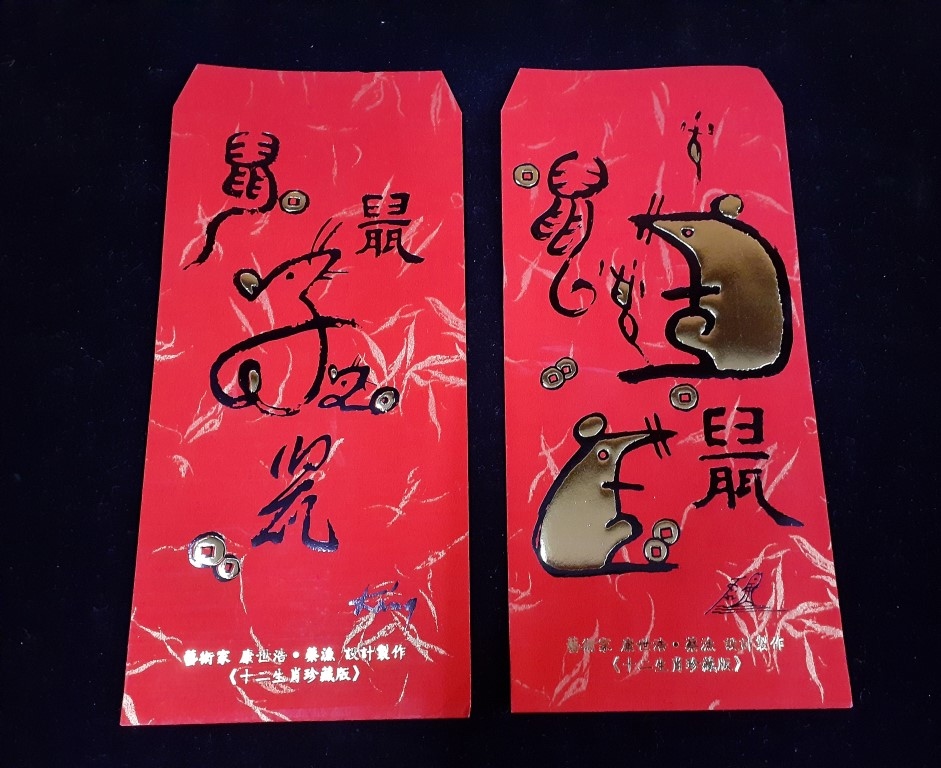 鼠
鼠
鼠
藝術家 康世浩•藥漁 設計製作
《十二生肖珍藏版》
鼠
鼠
藝術家 康世浩•藥漁 設計製作
《十二生肖珍藏版》